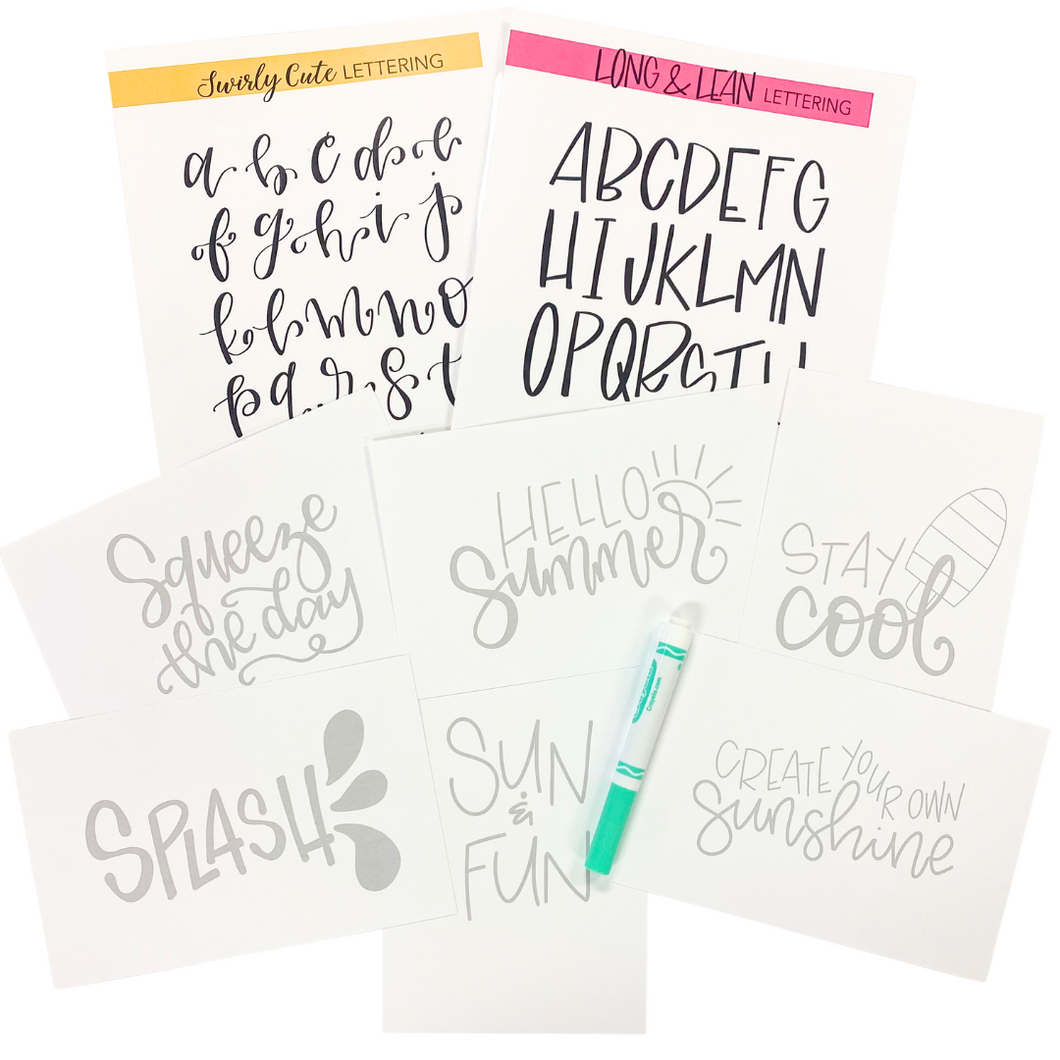 Swirly Cute LETTERING
a b c d e
f g h i j
k l m n o
p q r s t
LONG & LEAN LETTERING
ABCDEFG
HIJKLMN
OPQRSTU
Squeeze
the day
HELLO
Summer
STAY
cool
SPLASH
SUN
&
FUN
Crayola.com
CREATE YOUR OWN
Sunshine